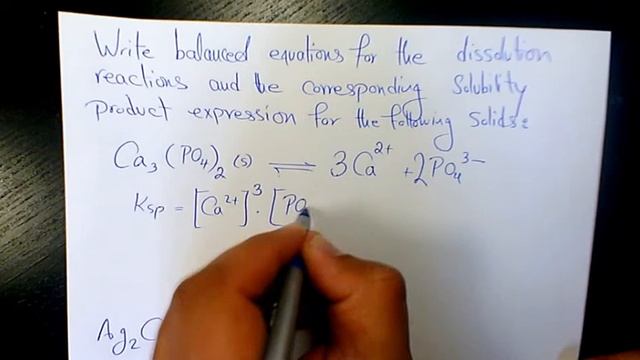 Write balanced equations for the dissolution
reactions and the corresponding Solubility
product expression for the following Solids:
Ca₃(PO₄)₂(s) ⇌ 3Ca²⁺ + 2PO₄³⁻
Ksp = [Ca²⁺]³ · [PO
Ag₂C